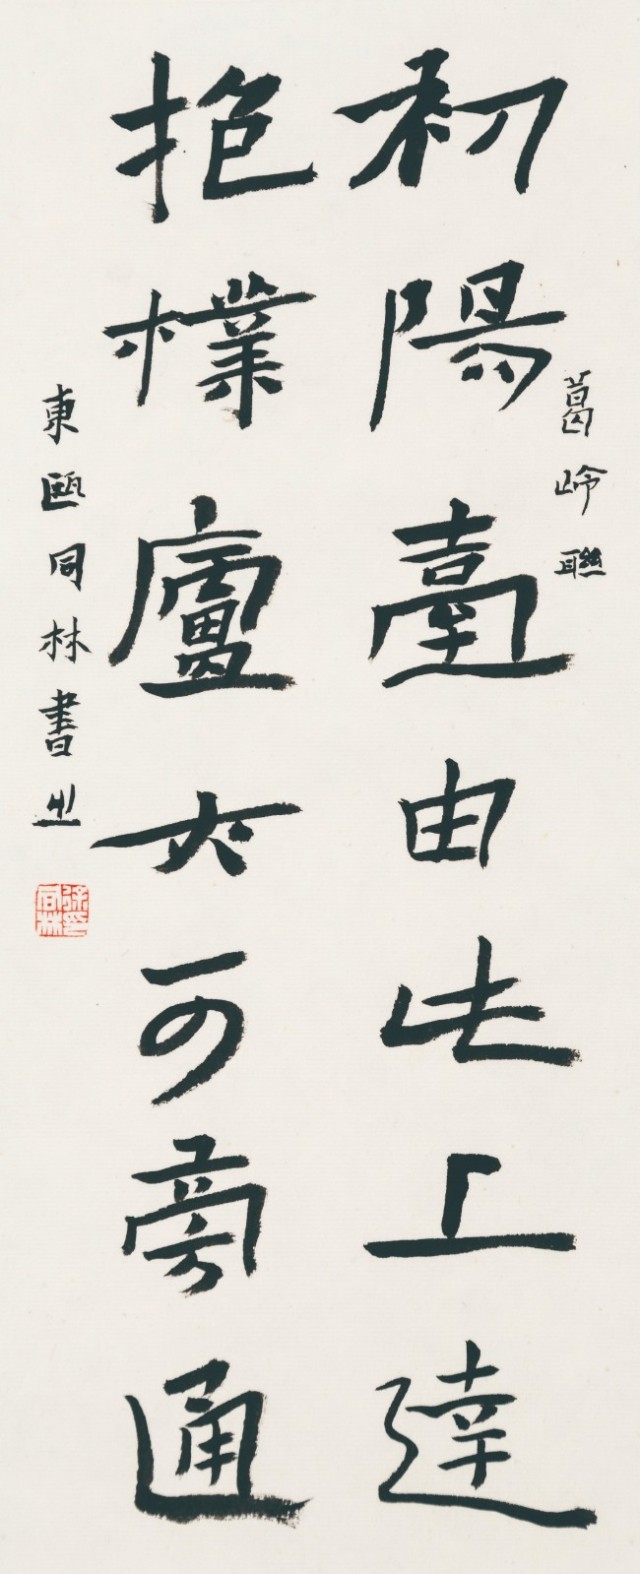 葛岭聯
初陽臺由此上達
抱樸廬亦可旁通
東甌同林書之
徐印同林